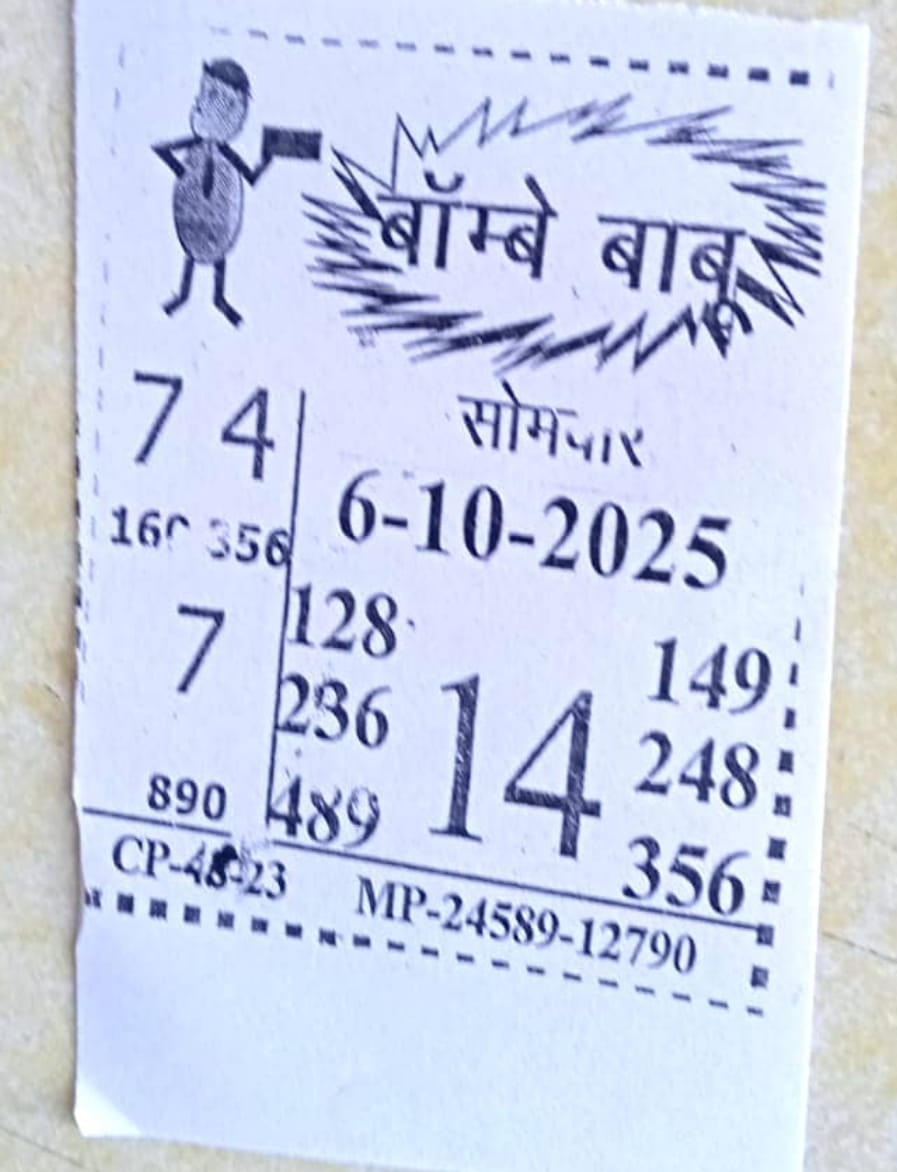 बॉम्बे बाबू
7 4
सोमवार
356
6-10-2025
7
128
236
489
14
149
248
356
890
MP-24589-12790